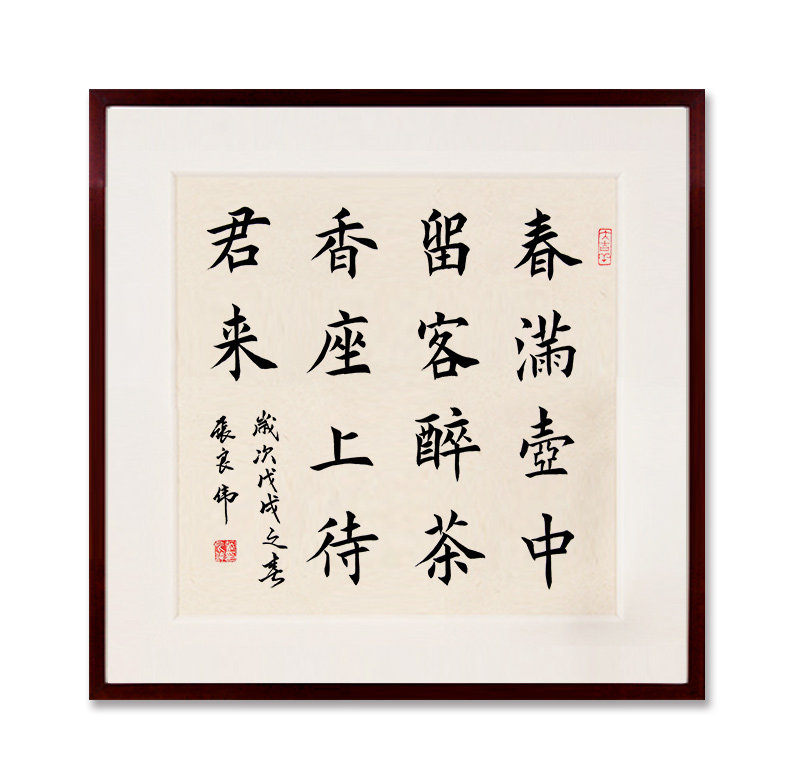 大吉羊
春滿壺中
留客醉茶
香座上待
君来
歲次戊戌之春
張良伟